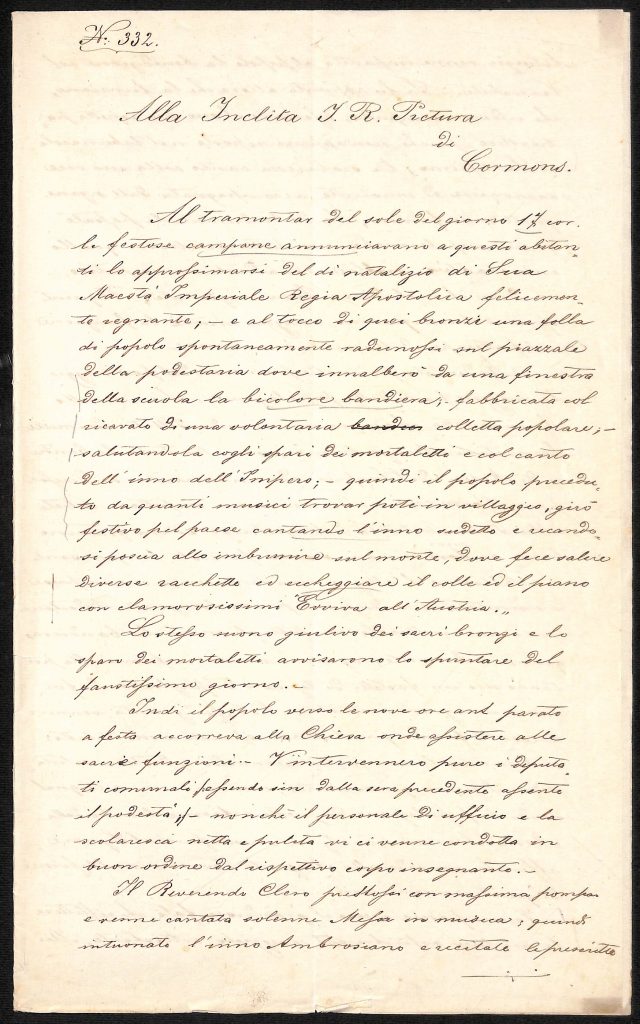 N: 332.
Alla Inclita I. R. Pretura
di
Cormons.
Al tramontar del sole del giorno 17 cor.
le festose campane annunciavano a questi abitan-
ti lo approssimarsi del dì natalizio di Sua
Maestà Imperiale Regia Apostolica felicemen-
te regnante; – e al tocco di quei bronzi una folla
di popolo spontaneamente radunossi sul piazzale
della podestaria dove innalberò da una finestra
della scuola la bicolore bandiera; – fabbricata col
ricavato di una volontaria colletta popolare; –
salutandola cogli spari dei mortaletti e col canto
dell'inno dell'Impero; – quindi il popolo precedu-
to da quanti musici trovar potè in villaggio, girò
festivo pel paese cantando l'inno sudetto e recando-
si poscia allo imbrunire sul monte, dove fece salire
diverse racchette ed eccheggiare il colle ed il piano
con clamorosissimi "Evviva all'Austria."
Lo stesso suono giulivo dei sacri bronzi e lo
sparo dei mortaletti avvisarono lo spuntare del
faustissimo giorno. –
Indi il popolo verso le nove ore ant. parato
a festa accorreva alla Chiesa onde assistere alle
sacre funzioni. – V'intervennero pure i deputa-
ti comunali /essendo sin dalla sera precedente assente
il podestà/; – nonchè il personale di ufficio e la
scolaresca netta e pulita vi ci venne condotta in
buon ordine dal rispettivo corpo insegnante. –
Il Reverendo Clero prestossi con massima pompa
e venne cantata solenne Messa in musica; quindi
intuonato l'inno Ambrosiano e recitate le prescritte